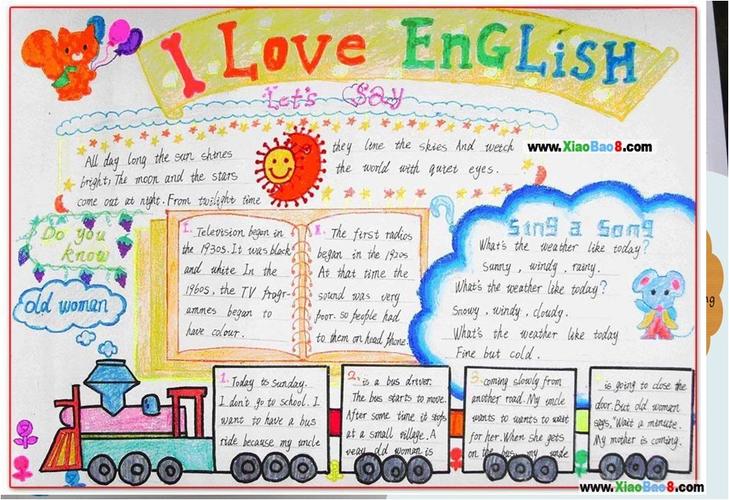 I LOVE ENGLISH
Let's Say
www.XiaoBao8.com
All day long the sun shines
bright; The moon and the stars
come out at night. From twilight time
they line the skies And wetch
the world with quiet eyes.
Do you
know
old woman
1. Television began in
the 1930s. It was black
and white In the
1960s, the TV progr-
ammes began to
have colour.
The first radios
began in the 1920s
At that time the
sound was very
poor. so people had
to them on head phone
Sing a Song
What's the weather like today?
Sunny , windy , rainy.
What's the weather like today?
Snowy , windy , cloudy.
What's the weather like today
Fine but cold .
1. Today to Sunday.
I don't go to school. I
want to have a bus
ride because my uncle
2. is a bus driver.
The bus starts to move.
After some time it stops
at a small village. A
very old woman is
3. coming slowly from
another road. My uncle
wants to wants to wait
for her. When she gets
on the bus, my uncle
is going to close the
door. But old woman
says, "Wait a minute.
My mother is coming.
www.XiaoBao8.com
ng